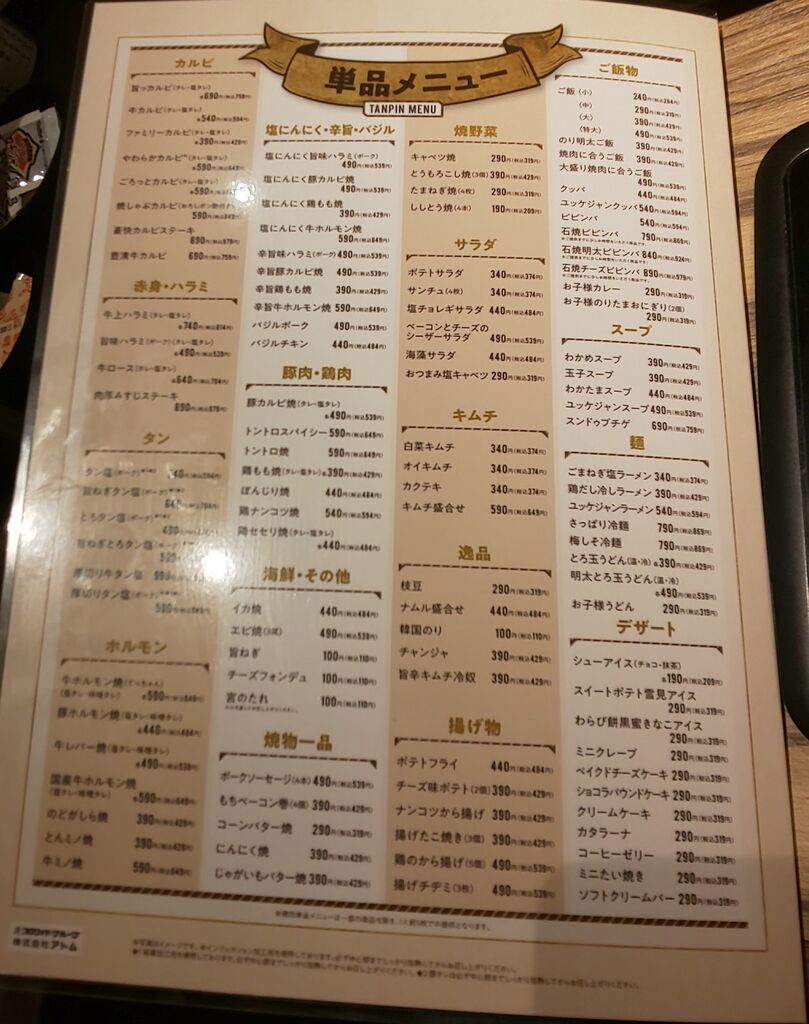 単品メニュー
TANPIN MENU
カルビ
旨っカルビ(タレ・塩タレ)
各690円(税込759円)
牛カルビ(タレ・塩タレ)
各540円(税込594円)
ファミリーカルビ(タレ・塩タレ)
各390円(税込429円)
やわらかカルビ(タレ・塩タレ)
各590円(税込649円)
ごろっとカルビ(タレ・塩タレ)
各590円
焼しゃぶカルビ(おろしポン酢付き)
590円(税込649円)
豪快カルビステーキ
890円(税込979円)
壺漬牛カルビ 690円(税込759円)
赤身・ハラミ
牛上ハラミ(タレ・塩タレ)
各740円(税込814円)
旨味ハラミ(ポーク)(タレ・塩タレ)
各490円(税込539円)
牛ロース(タレ・塩タレ)
各640円(税込704円)
肉厚みすじステーキ
890円(税込979円)
タン
タン塩(ポーク) 540円(税込594円)
旨ねぎタン塩(ポーク)
640円(税込704円)
とろタン塩(ポーク)
490円
旨ねぎとろタン塩(ポーク)
厚切り牛タン塩 990円
厚切りタン塩(ポーク)
590円(税込649円)
ホルモン
牛ホルモン焼(てっちゃん)
(塩タレ・味噌タレ) 各590円(税込649円)
豚ホルモン焼(塩タレ・味噌タレ)
各440円(税込484円)
牛レバー焼(塩タレ・味噌タレ)
各490円(税込539円)
国産牛ホルモン焼
(塩タレ・味噌タレ) 各590円(税込649円)
のどがしら焼 390円(税込429円)
とんミノ焼 390円(税込429円)
牛ミノ焼 590円(税込649円)
塩にんにく・辛旨・バジル
塩にんにく旨味ハラミ(ポーク)
490円(税込539円)
塩にんにく豚カルビ焼
490円(税込539円)
塩にんにく鶏もも焼
390円(税込429円)
塩にんにく牛ホルモン焼
590円(税込649円)
辛旨味ハラミ(ポーク) 490円(税込539円)
辛旨豚カルビ焼 490円(税込539円)
辛旨鶏もも焼 390円(税込429円)
辛旨牛ホルモン焼 590円(税込649円)
バジルポーク 490円(税込539円)
バジルチキン 440円(税込484円)
豚肉・鶏肉
豚カルビ焼(タレ・塩タレ)
各490円(税込539円)
トントロスパイシー 590円(税込649円)
トントロ焼 590円(税込649円)
鶏もも焼(タレ・塩タレ) 各390円(税込429円)
ぼんじり焼 440円(税込484円)
鶏ナンコツ焼 540円(税込594円)
鶏セセリ焼(タレ・塩タレ)
各440円(税込484円)
海鮮・その他
イカ焼 440円(税込484円)
エビ焼(3尾) 490円(税込539円)
旨ねぎ 100円(税込110円)
チーズフォンデュ 100円(税込110円)
宮のたれ 100円(税込110円)
焼物一品
ポークソーセージ(4本) 490円(税込539円)
もちベーコン巻(4個) 390円(税込429円)
コーンバター焼 290円(税込319円)
にんにく焼 390円(税込429円)
じゃがいもバター焼 390円(税込429円)
焼野菜
キャベツ焼 290円(税込319円)
とうもろこし焼(3個) 390円(税込429円)
たまねぎ焼(4枚) 290円(税込319円)
ししとう焼(4本) 190円(税込209円)
サラダ
ポテトサラダ 340円(税込374円)
サンチュ(4枚) 340円(税込374円)
塩チョレギサラダ 440円(税込484円)
ベーコンとチーズの
シーザーサラダ 490円(税込539円)
海藻サラダ 440円(税込484円)
おつまみ塩キャベツ 290円(税込319円)
キムチ
白菜キムチ 340円(税込374円)
オイキムチ 340円(税込374円)
カクテキ 340円(税込374円)
キムチ盛合せ 590円(税込649円)
逸品
枝豆 290円(税込319円)
ナムル盛合せ 440円(税込484円)
韓国のり 100円(税込110円)
チャンジャ 390円(税込429円)
旨辛キムチ冷奴 390円(税込429円)
揚げ物
ポテトフライ 440円(税込484円)
チーズ味ポテト(2個) 390円(税込429円)
ナンコツから揚げ 390円(税込429円)
揚げたこ焼き(3個) 390円(税込429円)
鶏のから揚げ(5個) 490円(税込539円)
揚げチヂミ(3枚) 490円(税込539円)
ご飯物
ご飯(小) 240円(税込264円)
(中) 290円(税込319円)
(大) 390円(税込429円)
(特大) 490円(税込539円)
のり明太ご飯 390円(税込429円)
焼肉に合うご飯 390円(税込429円)
大盛り焼肉に合うご飯
490円(税込539円)
クッパ 440円(税込484円)
ユッケジャンクッパ 540円(税込594円)
ビビンバ 540円(税込594円)
石焼ビビンバ 790円(税込869円)
石焼明太ビビンバ 840円(税込924円)
石焼チーズビビンバ 890円(税込979円)
お子様カレー 290円(税込319円)
お子様のりたまおにぎり(2個)
290円(税込319円)
スープ
わかめスープ 390円(税込429円)
玉子スープ 390円(税込429円)
わかたまスープ 440円(税込484円)
ユッケジャンスープ 490円(税込539円)
スンドゥブチゲ 690円(税込759円)
麺
ごまねぎ塩ラーメン 340円(税込374円)
鶏だし冷しラーメン 390円(税込429円)
ユッケジャンラーメン 540円(税込594円)
さっぱり冷麺 790円(税込869円)
梅しそ冷麺 790円(税込869円)
とろ玉うどん(温・冷) 各390円(税込429円)
明太とろ玉うどん(温・冷)
各490円(税込539円)
お子様うどん 290円(税込319円)
デザート
シューアイス(チョコ・抹茶)
各190円(税込209円)
スイートポテト雪見アイス
290円(税込319円)
わらび餅黒蜜きなこアイス
290円(税込319円)
ミニクレープ 290円(税込319円)
ベイクドチーズケーキ 290円(税込319円)
ショコラパウンドケーキ 290円(税込319円)
クリームケーキ 290円(税込319円)
カタラーナ 290円(税込319円)
コーヒーゼリー 290円(税込319円)
ミニたい焼き 290円(税込319円)
ソフトクリームバー 290円(税込319円)
コロワイドグループ
株式会社アトム